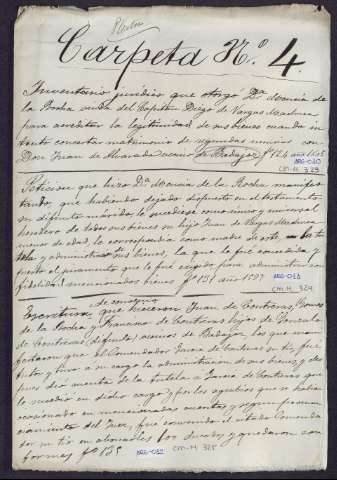 Carpeta N.º 4.
Inventario jurídico que otorgó D.ª Mencia de
la Rocha viuda del Capitan Diego de Vargas Machuca
para acreditar la legitimidad de sus bienes cuando in-
tentó concertar matrimonio de segundas nuncias con
Don Juan de Alvarado vecino de Badajoz fº 124
CM-H 323
Peticion que hizo D.ª Mencia de la Rocha manifes-
tando, que habiendo dejado dispuesto en el testamento
su difunto márido le sucediese como unico y universal
heredero de todos sus bienes su hijo Juan de Vargas Machuca
menor de edad le correspondia como madre de este, la tu-
tela y administrar sus bienes, la que le fué concedida y
puesto el juramento que le fué exigido para administrar con
fidelidad mencionados bienes fº 131 año 1597
CM-H 324
Escritura de concierto que hicieron Juan de Contreras, Gomez
de la Rocha y Francisco de Contreras hijos de Gonzalo
de Contreras (difunto) vecinos de Badajoz los que mani-
festaron que el Comendador Garcia de Contreras su tio, fué
tutor y tuvo a su cargo la administracion de sus bienes, y des-
pues dió cuenta de la tutela a Garcia de Contreras que
le sucedió en dicho cargo y por los agravios que se habian
ocasionado en mencionadas cuentas y segun pronun-
ciamiento del Juez, fué convenido el citado Comenda-
dor su tio en abonarles los ducados y quedaron con-
formes fº 135
CM-H 325